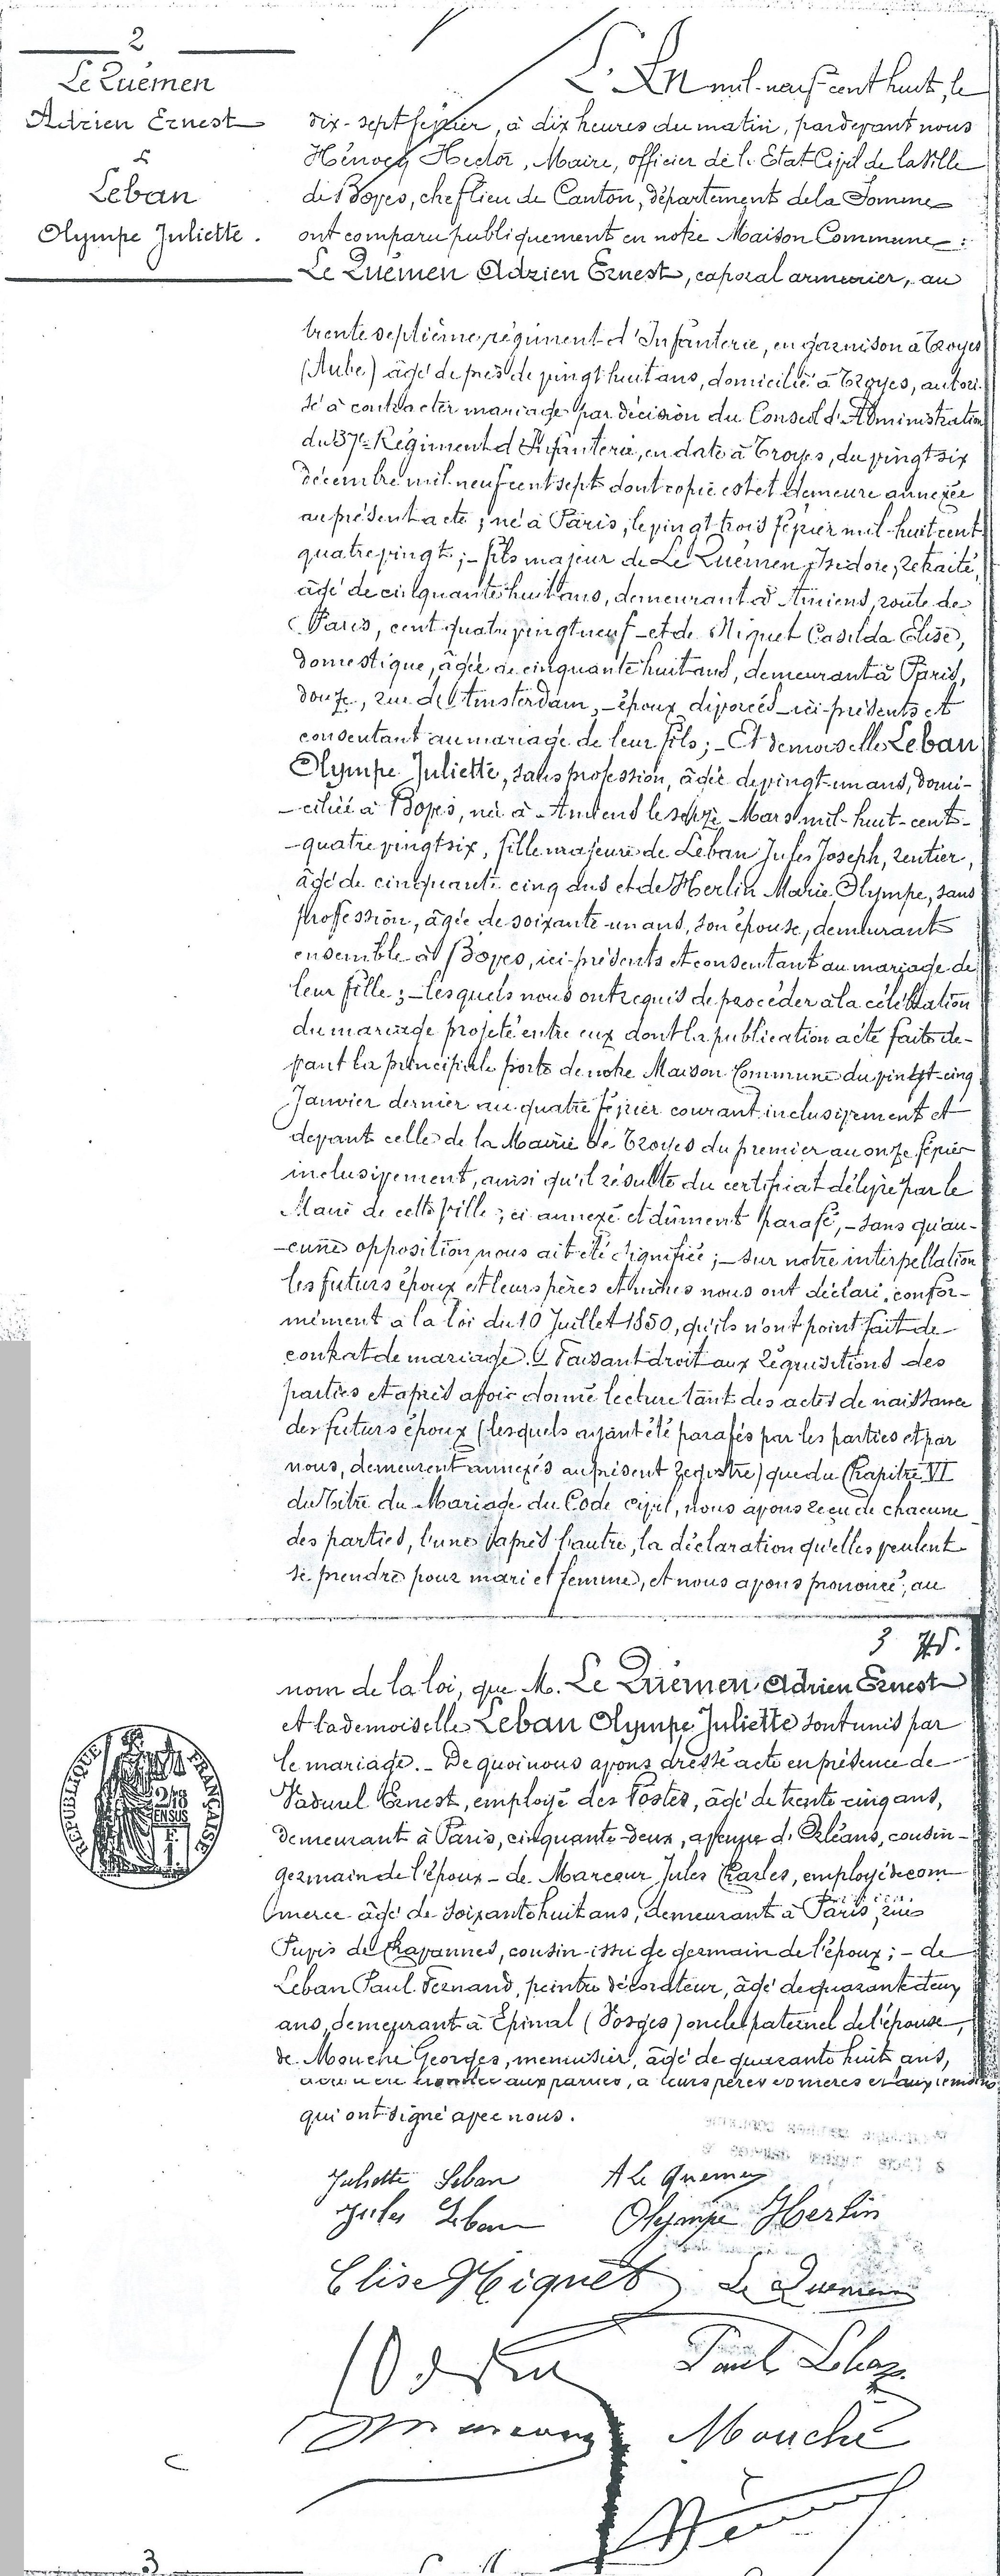 2
Le Quémen
Adrien Ernest
&
Leban
Olympe Juliette.
L'An mil-neuf-cent huit, le
dix-sept février, à dix heures du matin, pardevant nous
Hénocq Hector, Maire, officier de l'Etat Civil de la Ville
de Boves, chef lieu de Canton, département de la Somme
ont comparu publiquement en notre Maison Commune :
Le Quémen Adrien Ernest, caporal armurier, au
trente septième régiment d'Infanterie, en garnison à Troyes
(Aube) âgé de près de vingt huit ans, domicilié à Troyes, autori-
sé à contracter mariage par décision du Conseil d'Administration
du 37e Régiment d'Infanterie, en date à Troyes, du vingt six
décembre mil-neuf cent sept dont copie est et demeure annexée
au présent acte ; né à Paris, le vingt trois février mil-huit cent
quatre vingt ; - fils majeur de Le Quémen Isidore, retraité,
âgé de cinquante huit ans, demeurant à Amiens, route de
Paris, cent quatre vingt neuf - et de Miquet Casilda Elise,
domestique, âgée de cinquante huit ans, demeurant à Paris,
douze, rue d'Amsterdam, - époux divorcés - ici présents et
consentant au mariage de leur fils ; - Et demoiselle Leban
Olympe Juliette, sans profession, âgée de vingt-un ans, domi-
-ciliée à Boves, née à Amiens le seize Mars mil-huit-cent-
-quatre vingt six, fille majeure de Leban Jules Joseph, rentier,
âgé de cinquante cinq ans et de Herlin Marie Olympe, sans
profession, âgée de soixante-un ans, son épouse, demeurant
ensemble à Boves, ici présents et consentant au mariage de
leur fille ; - lesquels nous ont requis de procéder à la célébration
du mariage projeté entre eux dont la publication a été faite de-
vant la principale porte de notre Maison Commune du vingt-cinq
Janvier dernier au quatre février courant inclusivement et
devant celle de la Mairie de Troyes du premier au onze février
inclusivement, ainsi qu'il résulte du certificat délivré par le
Maire de cette ville, ci annexé et dûment parafé, - sans qu'au-
-cune opposition nous ait été signifiée ; - sur notre interpellation
les futurs époux et leurs pères et mères nous ont déclaré, confor-
mément à la loi du 10 Juillet 1850, qu'ils n'ont point fait de
contrat de mariage. Faisant droit aux réquisitions des
parties et après avoir donné lecture tant des actes de naissance
des futurs époux (lesquels ayant été parafés par les parties et par
nous, demeurent annexés au présent registre) que du Chapitre VI
du Titre du Mariage du Code civil, nous avons reçu de chacune
des parties, l'une après l'autre, la déclaration qu'elles veulent
se prendre pour mari et femme, et nous avons prononcé, au
3
nom de la loi, que M. Le Quémen Adrien Ernest
et la demoiselle Leban Olympe Juliette sont unis par
le mariage. - De quoi nous avons dressé acte en présence de
Vadurel Ernest, employé des Postes, âgé de trente-cinq ans,
demeurant à Paris, cinquante-deux, avenue d'Orléans, cousin-
germain de l'époux - de Marcour Jules Charles, employé de com
merce âgé de soixante huit ans, demeurant à Paris, rue
Puvis de Chavannes, cousin-issu de germain de l'époux ; - de
Leban Paul Fernand, peintre décorateur, âgé de quarante deux
ans, demeurant à Epinal (Vosges) oncle paternel de l'épouse,
de Mouche Georges, menuisier, âgé de quarante huit ans,
donnée aux parties, à leurs pères et mères et aux témoins
qui ont signé avec nous.
Juliette Leban
A Le Quemen
Jules Leban
Olympe Herlin
Elise Miquet
Le Quemen
Paul Leban
Mouche
REPUBLIQUE FRANÇAISE
3